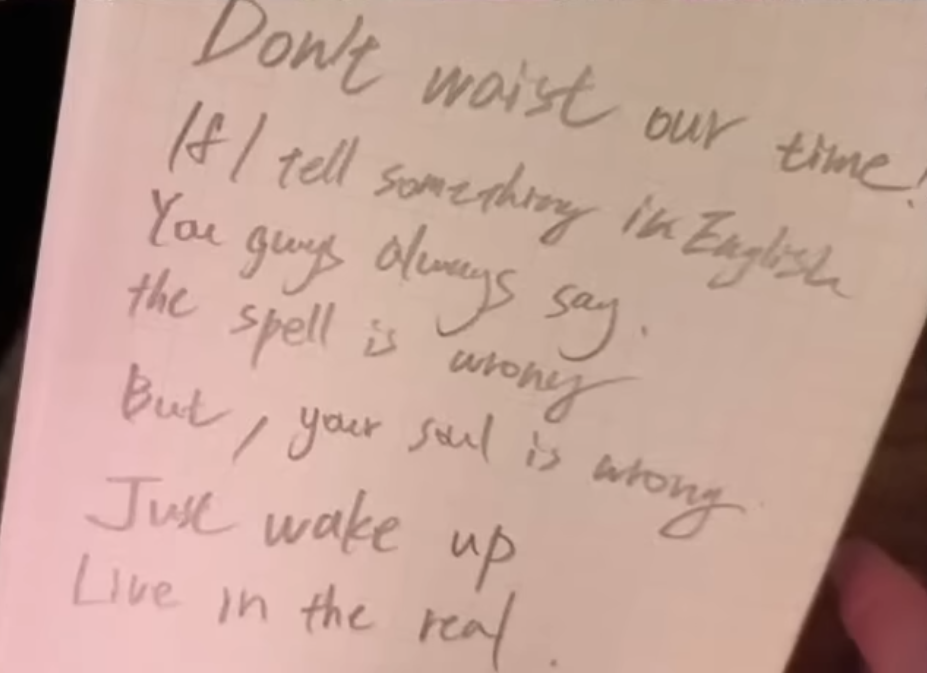 Don't waist our time!
If I tell something in English
You guys always say.
the spell is wrong
But, your soul is wrong
Just wake up
Live in the real.